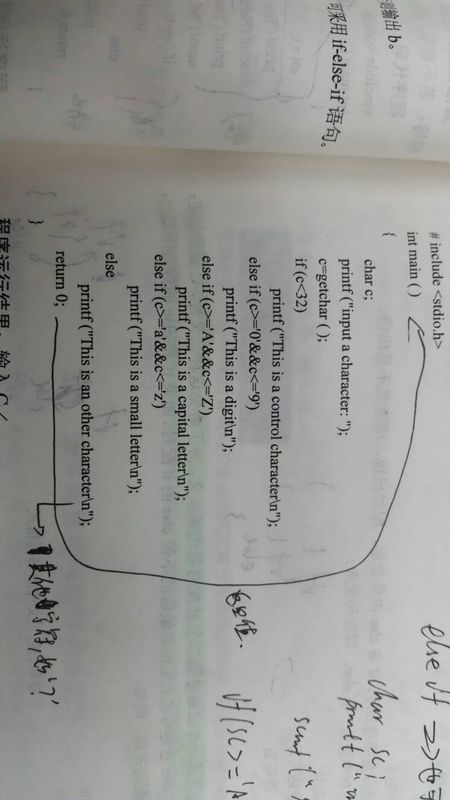 输出 b。
可采用 if-else-if 语句。
# include <stdio.h>
int main ( )
{
char c;
printf ("input a character: ");
c=getchar ( );
if (c<32)
printf ("This is a control character\n");
else if (c>='0'&&c<='9')
printf ("This is a digit\n");
else if (c>='A'&&c<='Z')
printf ("This is a capital letter\n");
else if (c>='a'&&c<='z')
printf ("This is a small letter\n");
else
printf ("This is an other character\n");
return 0;
}
程序运行结果:输入
else if
char sc;
printf ("
scanf ("
if (sc>='A
返回值.
其他字符,如'?'